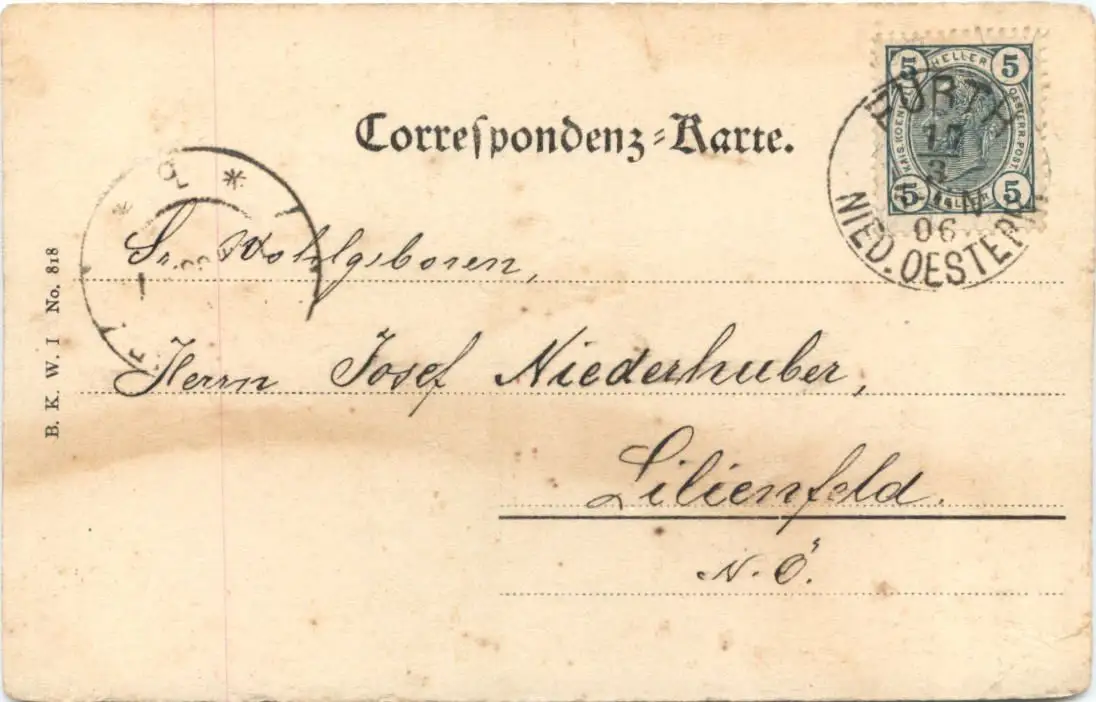 Correspondenz-Karte.
5 HELLER 5
KAIS. KOEN. OESTERR. POST.
5 HELLER 5
17
3
06
NIED. OESTERR.
Sr. Wohlgeboren,
Herrn Josef Niederhuber,
Lilienfeld.
N. Ö.
B. K. W. I No. 818